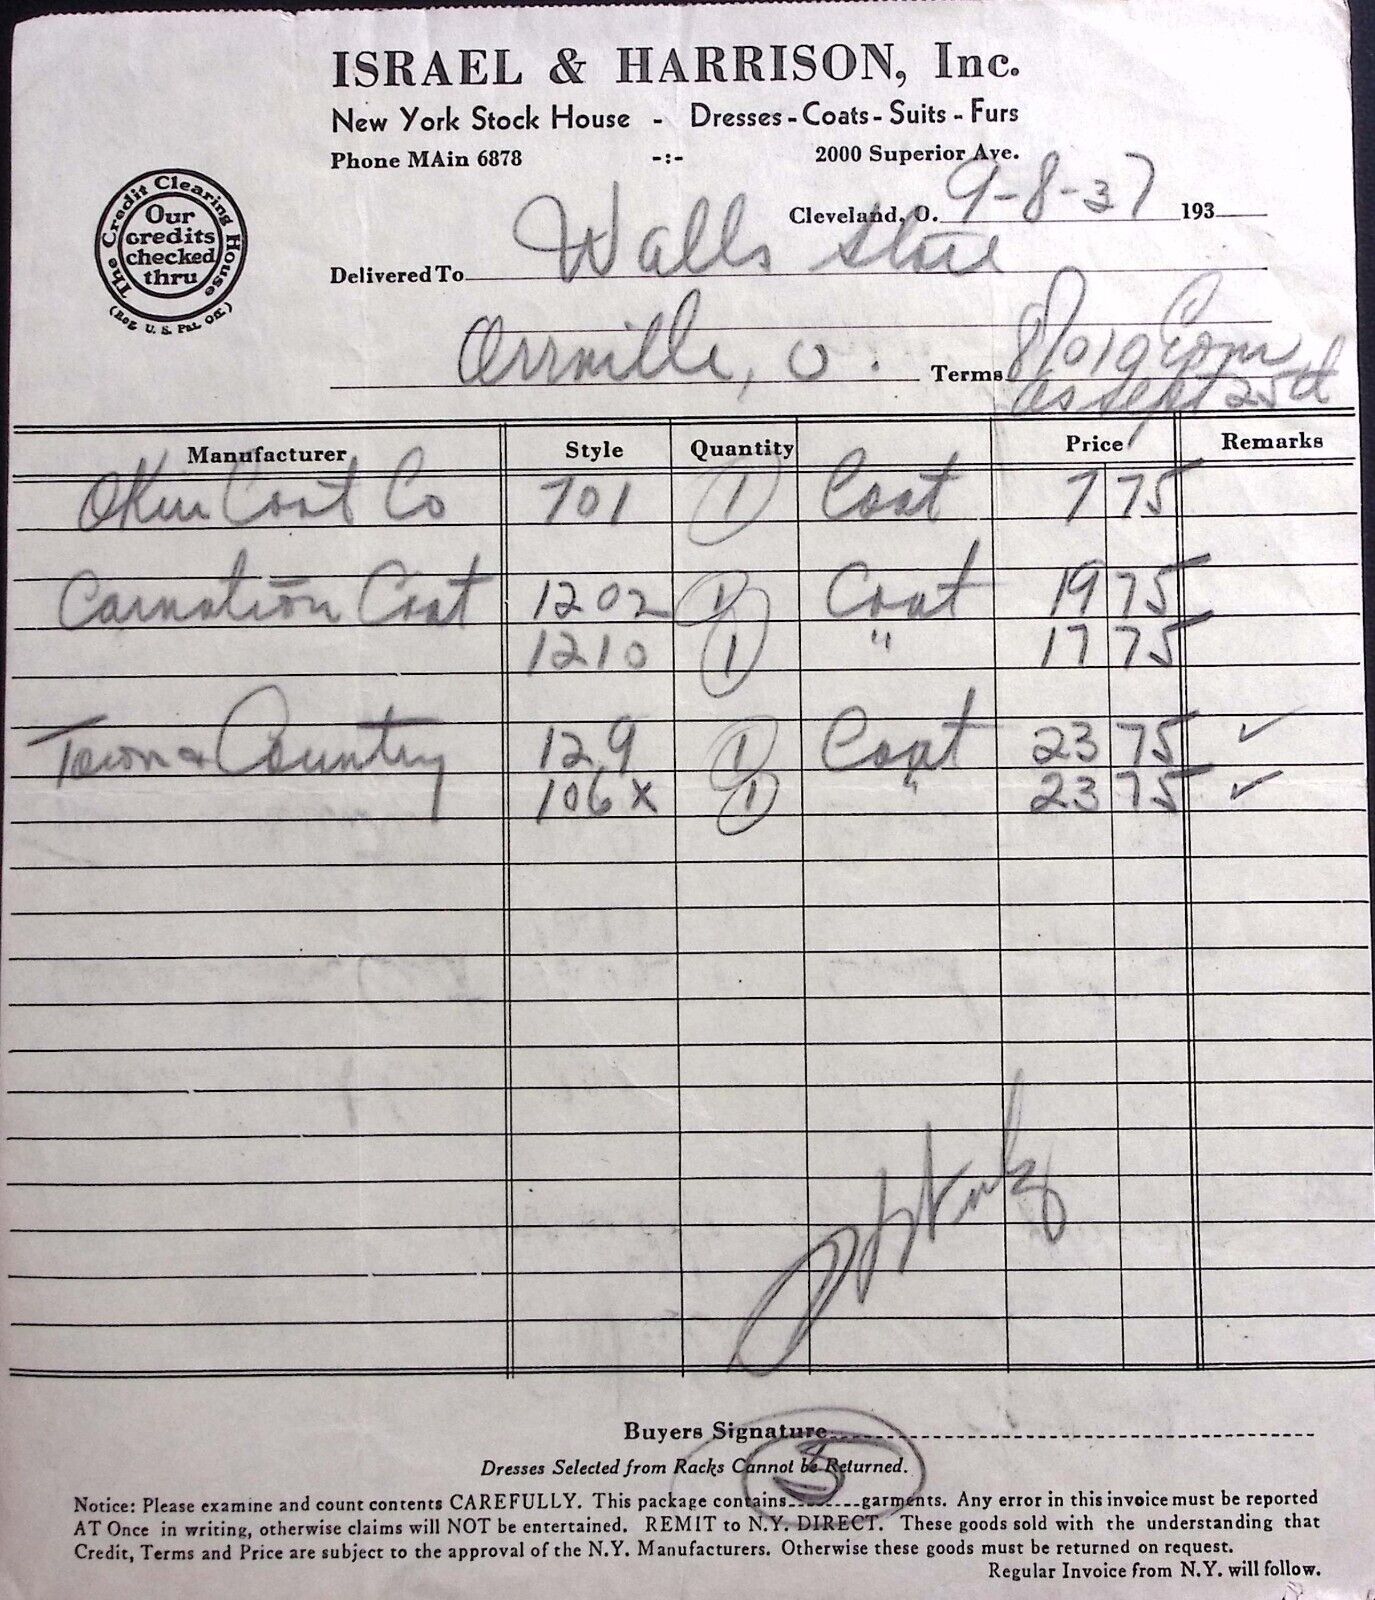 ISRAEL & HARRISON, Inc.
New York Stock House - Dresses - Coats - Suits - Furs
Phone MAin 6878 -:- 2000 Superior Ave.
The Credit Clearing House
Our credits checked thru
(Reg. U. S. Pat. Off.)
Cleveland, O. 9-8-37 193
Delivered To Walls Store
Orrville, O. Terms 8/10
as Sept 25th
Manufacturer Style Quantity Price Remarks
Coat Co 701 1 Coat 7 75
Carnation Coat 1202 1 Coat 19 75
1210 1 " 17 75
Town & Country 129 1 Coat 23 75 ✓
106 x 1 " 23 75 ✓
Buyers Signature
5
Dresses Selected from Racks Cannot be Returned.
Notice: Please examine and count contents CAREFULLY. This package contains garments. Any error in this invoice must be reported
AT Once in writing, otherwise claims will NOT be entertained. REMIT to N.Y. DIRECT. These goods sold with the understanding that
Credit, Terms and Price are subject to the approval of the N.Y. Manufacturers. Otherwise these goods must be returned on request.
Regular Invoice from N.Y. will follow.